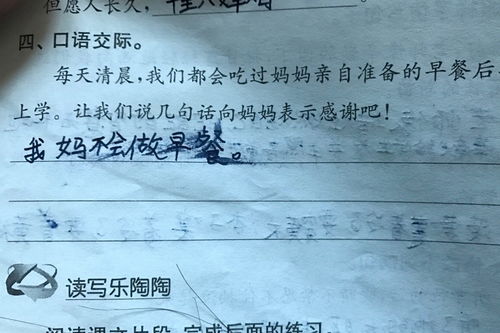 但愿人长久，千里共婵娟。
四、口语交际。
每天清晨，我们都会吃过妈妈亲自准备的早餐后
上学。让我们说几句话向妈妈表示感谢吧！
我妈不会做早餐。
读写乐陶陶
阅读课文片段，完成后面的练习。